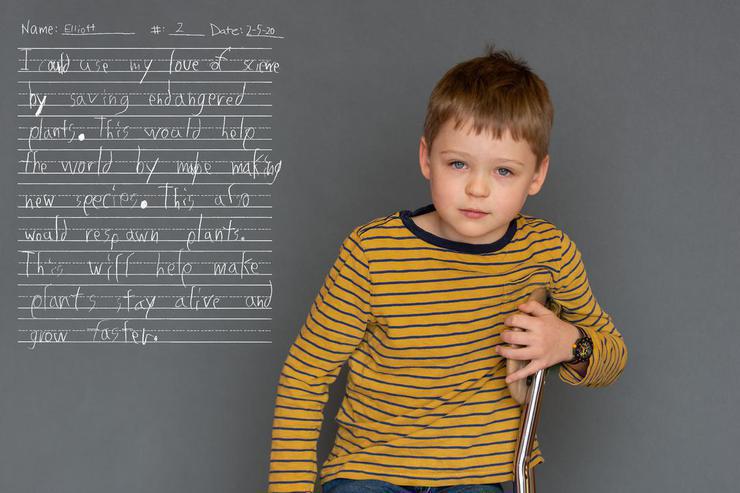 Name: Elliott #: 2 Date: 2-5-20
I could use my love of science
by saving endangered
plants. This would help
the world by mabe making
new species. This also
would respawn plants.
This will help make
plants stay alive and
grow faster.